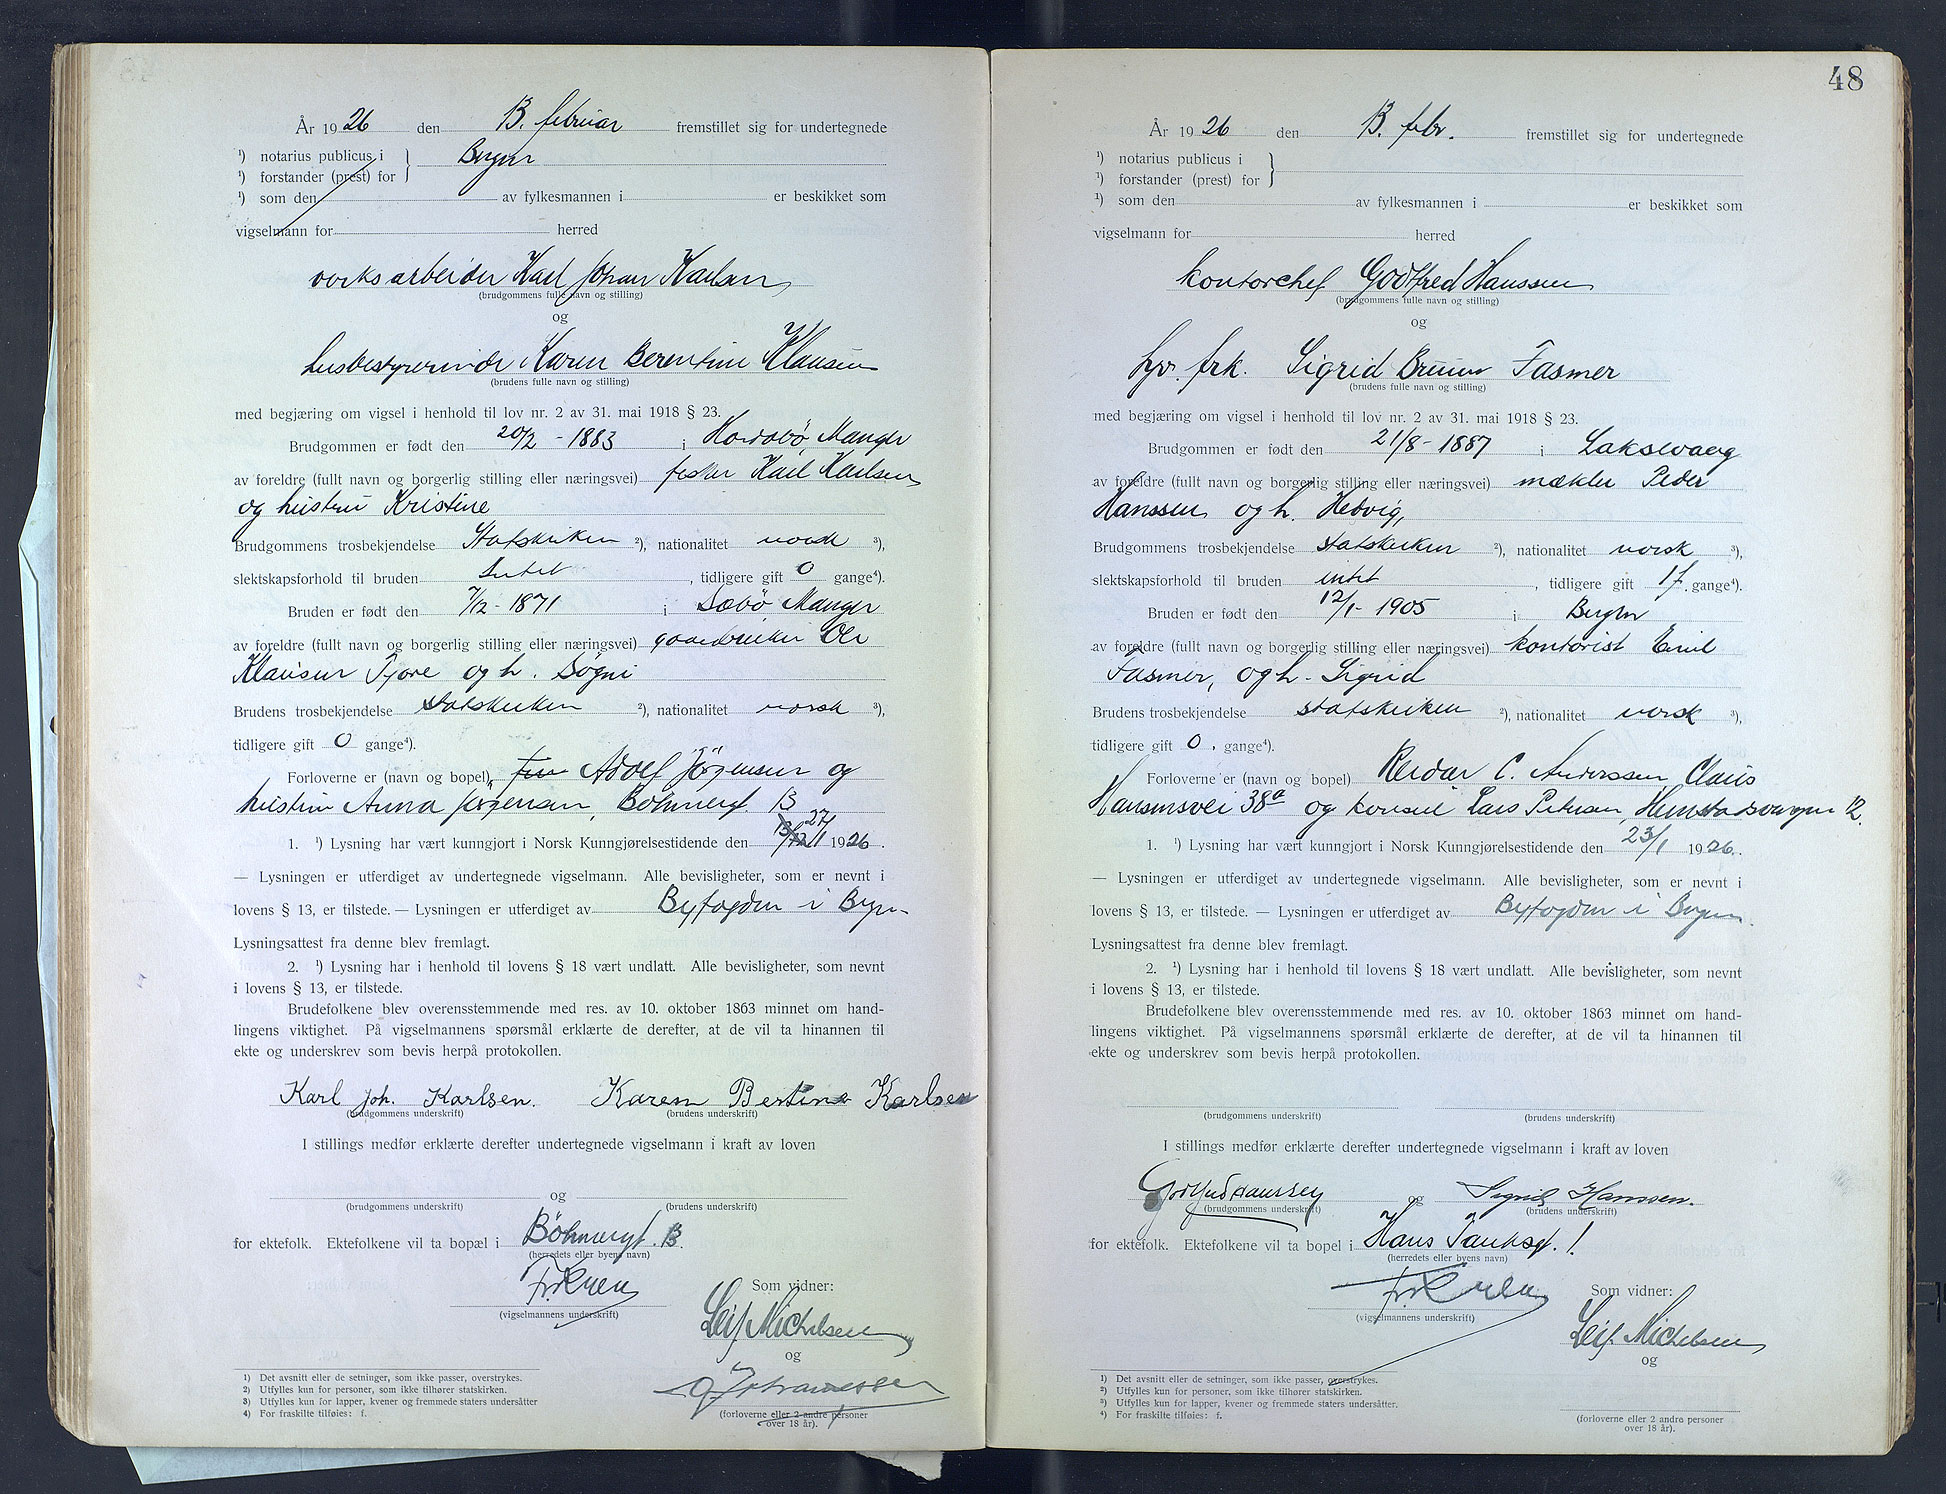 År 1926 den 13. februar fremstillet sig for undertegnede
¹) notarius publicus i Bergen
¹) forstander (prest) for
¹) som den av fylkesmannen i er beskikket som
vigselmann for herred
verksarbeider Karl Johan Karlsen
(brudgommens fulle navn og stilling)
og
husbestyrerinde Karen Berentine Klausen
(brudens fulle navn og stilling)
med begjæring om vigsel i henhold til lov nr. 2 av 31. mai 1918 § 23.
Brudgommen er født den 20/2 - 1883 i Hordabø, Manger
av foreldre (fullt navn og borgerlig stilling eller næringsvei) fisker Karl Karlsen
og hustru Kristine
Brudgommens trosbekjendelse Statskirken ²), nationalitet norsk ³),
slektskapsforhold til bruden Intet, tidligere gift 0 gange⁴).
Bruden er født den 7/12 - 1871 i Sæbø Manger
av foreldre (fullt navn og borgerlig stilling eller næringsvei) gaardbruker Ole
Klausen og h. Søgni
Brudens trosbekjendelse statskirken ²), nationalitet norsk ³),
tidligere gift 0 gange⁴).
Forloverne er (navn og bopel) Adolf Jörgensen og
hustru Anna Jørgensen, Böhmergt. 13
1. ¹) Lysning har vært kunngjort i Norsk Kunngjørelsestidende den 27/1 1926.
— Lysningen er utferdiget av undertegnede vigselmann. Alle bevisligheter, som er nevnt i
lovens § 13, er tilstede. — Lysningen er utferdiget av Byfogden i Bergen
Lysningsattest fra denne blev fremlagt.
2. ¹) Lysning har i henhold til lovens § 18 vært undlatt. Alle bevisligheter, som nevnt
i lovens § 13, er tilstede.
Brudefolkene blev overensstemmende med res. av 10. oktober 1863 minnet om hand-
lingens viktighet. På vigselmannens spørsmål erklærte de derefter, at de vil ta hinannen til
ekte og underskrev som bevis herpå protokollen.
Karl Joh. Karlsen. Karen Bertine Karlsen
(brudgommens underskrift) (brudens underskrift)
I stillings medfør erklærte derefter undertegnede vigselmann i kraft av loven
og
(brudgommens underskrift) (brudens underskrift)
for ektefolk. Ektefolkene vil ta bopæl i Böhmergt. 13.
(herredets eller byens navn)
Som vidner:
(vigselmannens underskrift)
Leif Michelsen
og
Johannessen
(forloverne eller 2 andre personer
over 18 år).
1) Det avsnitt eller de setninger, som ikke passer, overstrykes.
2) Utfylles kun for personer, som ikke tilhører statskirken.
3) Utfylles kun for lapper, kvener og fremmede staters undersåtter
4) For fraskilte tilføies: f.
48
År 1926 den 13. febr. fremstillet sig for undertegnede
¹) notarius publicus i
¹) forstander (prest) for
¹) som den av fylkesmannen i er beskikket som
vigselmann for herred
kontorchef Godtfred Hanssen
(brudgommens fulle navn og stilling)
og
hjv. frk. Sigrid Bruun Fasmer
(brudens fulle navn og stilling)
med begjæring om vigsel i henhold til lov nr. 2 av 31. mai 1918 § 23.
Brudgommen er født den 21/8 - 1887 i Laksevaag
av foreldre (fullt navn og borgerlig stilling eller næringsvei) mækler Peder
Hanssen og h. Hedvig,
Brudgommens trosbekjendelse statskirken ²), nationalitet norsk ³),
slektskapsforhold til bruden intet, tidligere gift 1 f. gange⁴).
Bruden er født den 12/1 - 1905 i Bergen
av foreldre (fullt navn og borgerlig stilling eller næringsvei) kontorist Emil
Fasmer, og h. Sigrid
Brudens trosbekjendelse statskirken ²), nationalitet norsk ³),
tidligere gift 0. gange⁴).
Forloverne er (navn og bopel) Reidar C. Anderssen Claus
Hansensvei 38a og konsul Lars Petersen, 12.
1. ¹) Lysning har vært kunngjort i Norsk Kunngjørelsestidende den 23/1 1926.
— Lysningen er utferdiget av undertegnede vigselmann. Alle bevisligheter, som er nevnt i
lovens § 13, er tilstede. — Lysningen er utferdiget av Byfogden i Bergen.
Lysningsattest fra denne blev fremlagt.
2. ¹) Lysning har i henhold til lovens § 18 vært undlatt. Alle bevisligheter, som nevnt
i lovens § 13, er tilstede.
Brudefolkene blev overensstemmende med res. av 10. oktober 1863 minnet om hand-
lingens viktighet. På vigselmannens spørsmål erklærte de derefter, at de vil ta hinannen til
ekte og underskrev som bevis herpå protokollen.
(brudgommens underskrift) (brudens underskrift)
I stillings medfør erklærte derefter undertegnede vigselmann i kraft av loven
Godtfred Hanssen og Sigrid Hanssen.
(brudgommens underskrift) (brudens underskrift)
for ektefolk. Ektefolkene vil ta bopel i Hans Tanksgt. 1.
(herredets eller byens navn)
Som vidner:
(vigselmannens underskrift)
Leif Michelsen
og
(forloverne eller 2 andre personer
over 18 år).
¹) Det avsnitt eller de setninger, som ikke passer, overstrykes.
²) Utfylles kun for personer, som ikke tilhører statskirken.
³) Utfylles kun for lapper, kvener og fremmede staters undersåtter.
⁴) For fraskilte tilføies: f.